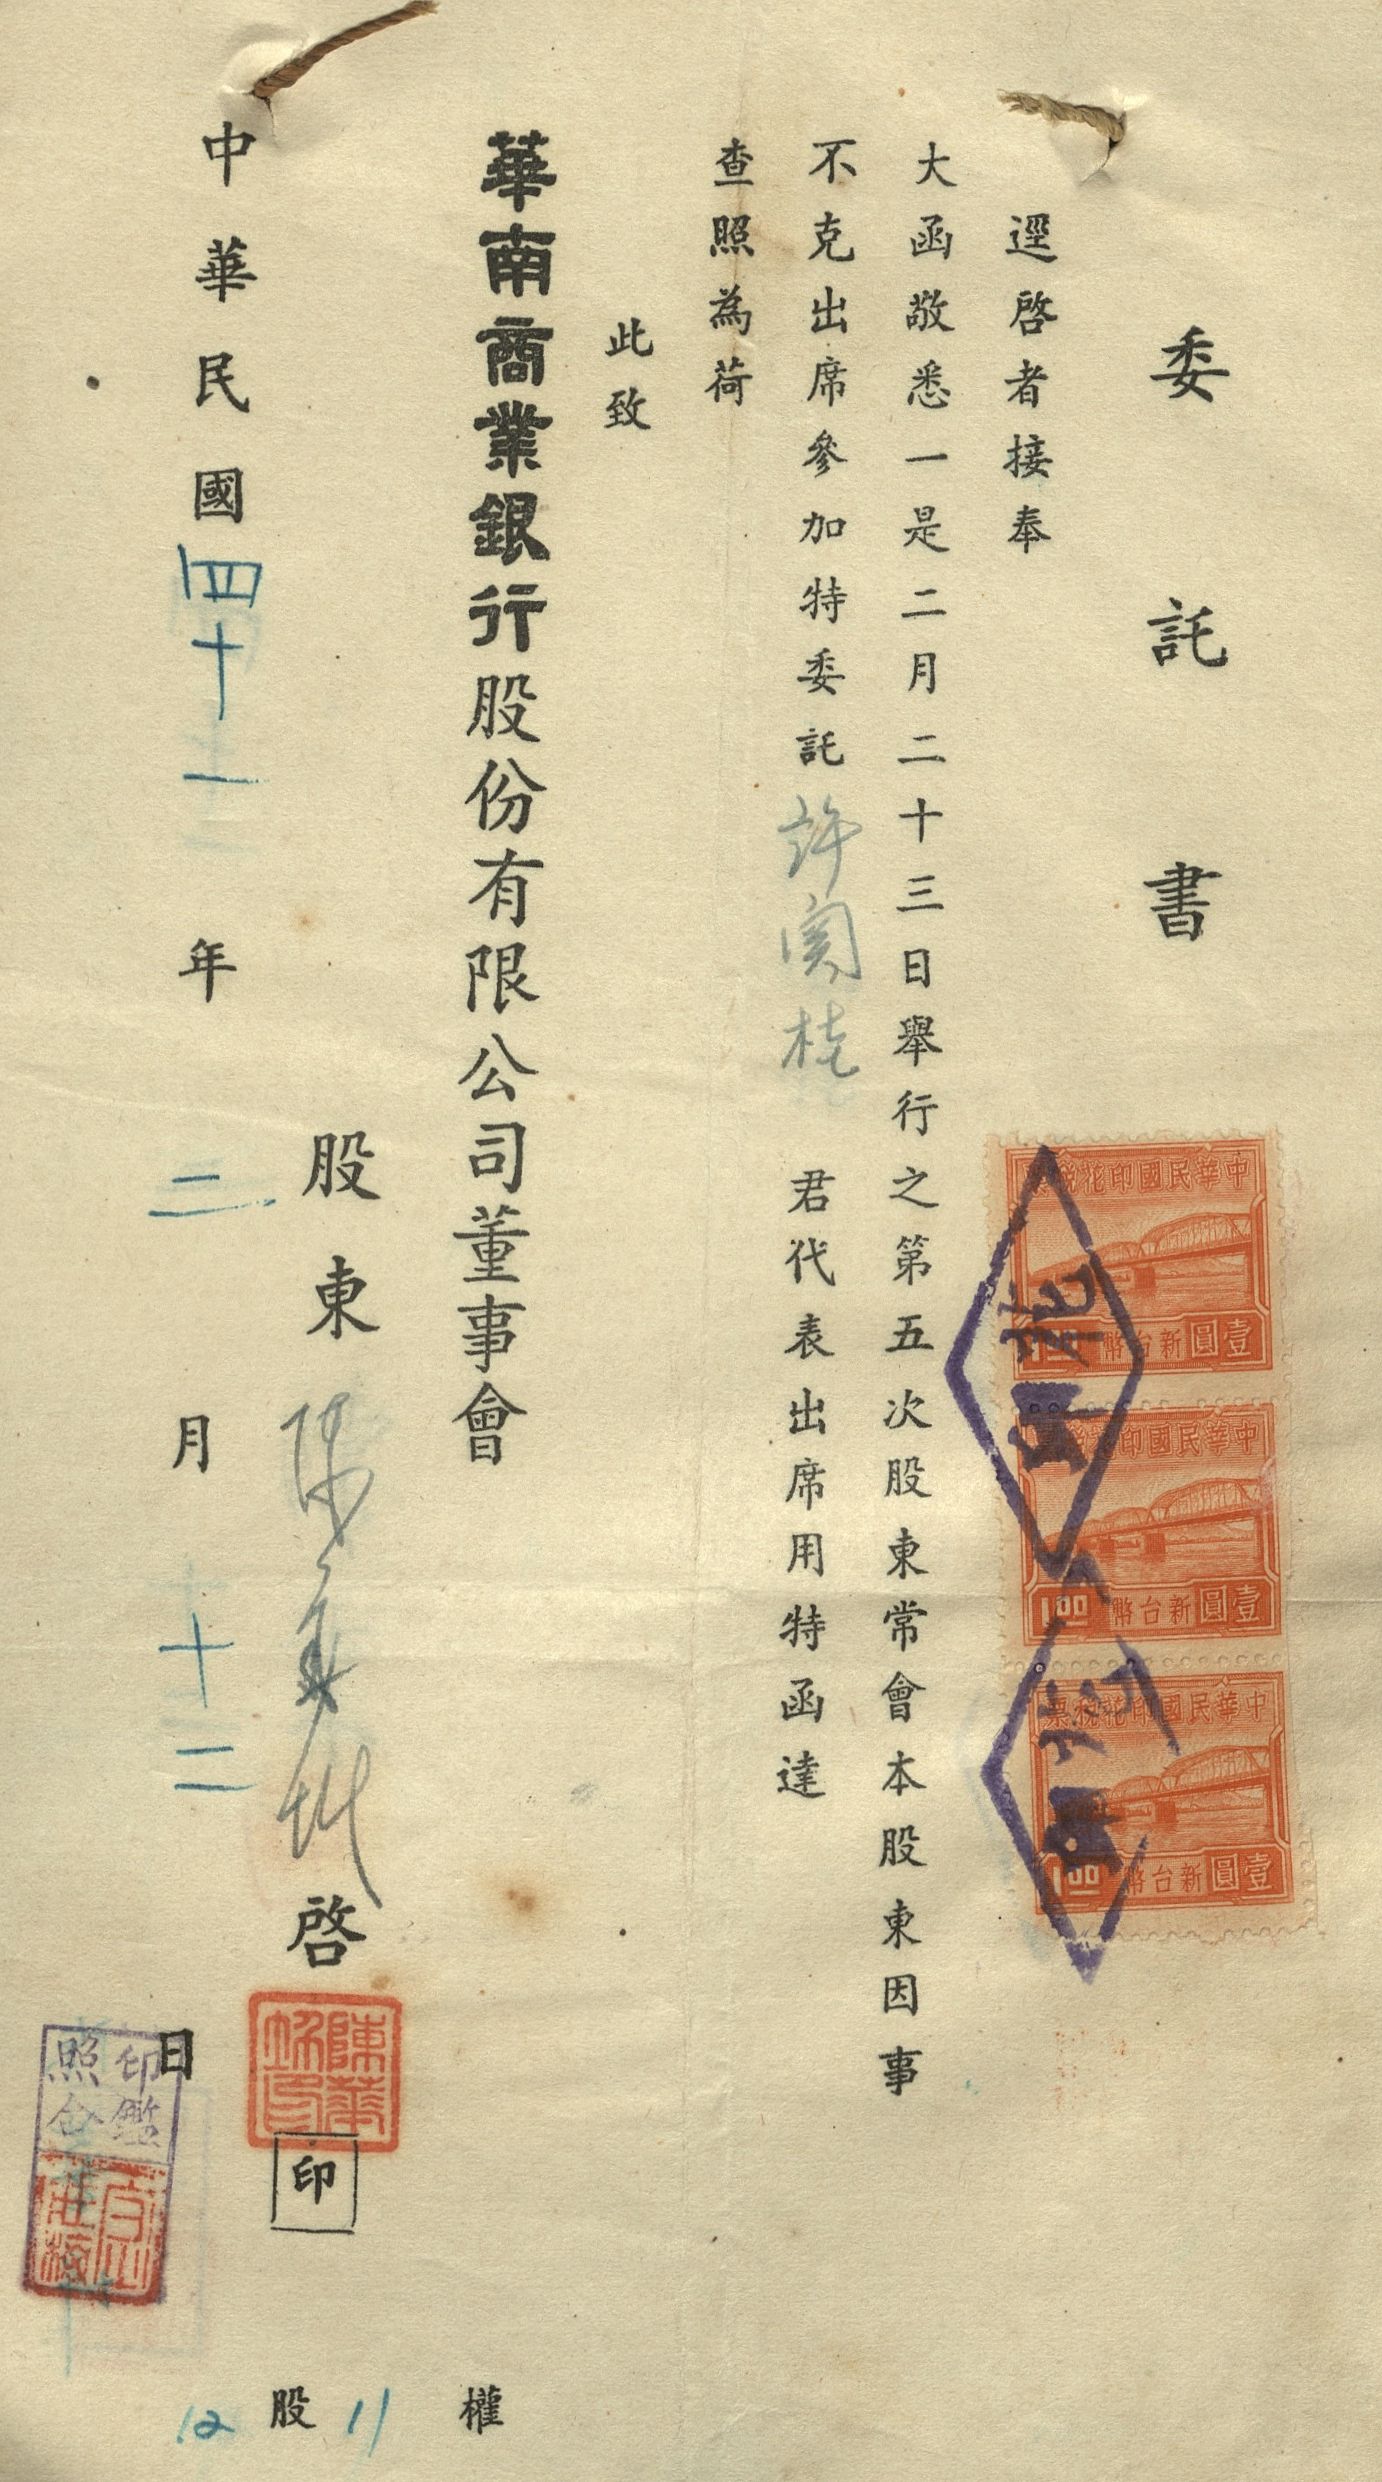 委託書
逕啓者接奉
大函敬悉一是二月二十三日舉行之第五次股東常會本股東因事
不克出席參加特委託許 君代表出席用特函達
查照為荷
此致
華南商業銀行股份有限公司董事會
股東陳 啓
印
中華民國四十一年二月十二日
權
11
股
12
中華民國印花稅票
壹圓新台幣
中華民國印花稅票
壹圓新台幣
1.00
中華民國印花稅票
壹圓新台幣
1.00
陳華
印鑑
照合